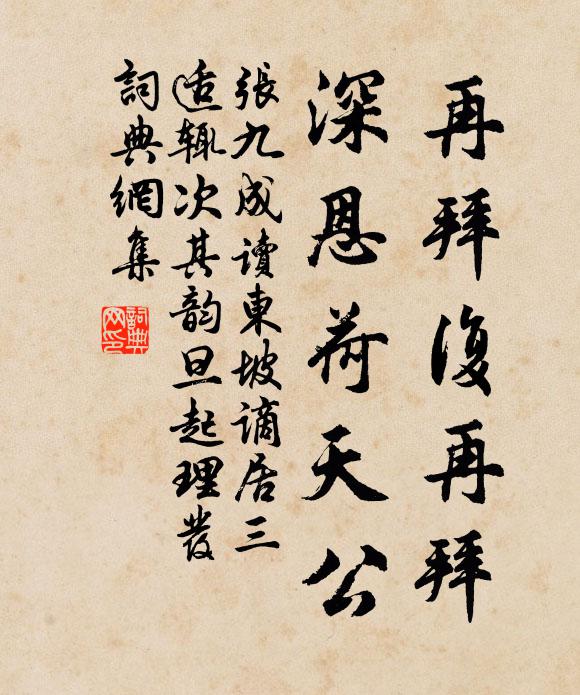 再拜復再拜
深恩荷天公
張九成讀東坡謫居三
适輒次其韵旦起理發
詞典網集
詞典
网印